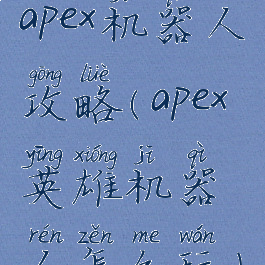 apex机器人
gōng lüè
攻略(apex
yīng xióng jī qì
英雄机器
rén zěn me wán
人怎么玩)